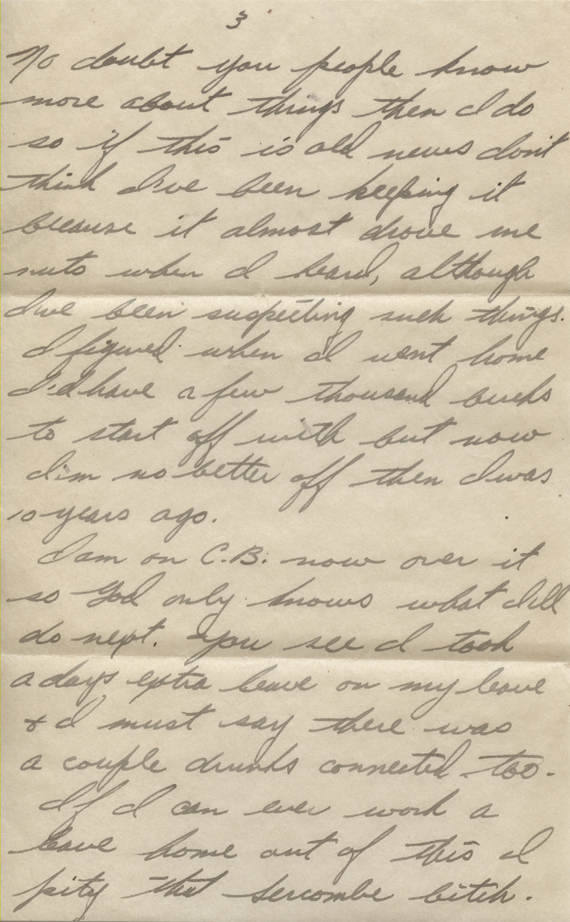 3
No doubt you people know
more about things then I do
so if this is old news don't
think I've been keeping it
because it almost drove me
nuts when I heard, although
I've been suspecting such things.
I figured when I went home
I'd have a few thousand bucks
to start off with but now
I'm no better off then I was
10 years ago.
I am on C.B. now over it
so God only knows what I'll
do next. You see I took
a days extra leave on my leave
& I must say there was
a couple drunks connected too.
If I can ever work a
leave home out of this I
pity that Sercombe bitch.